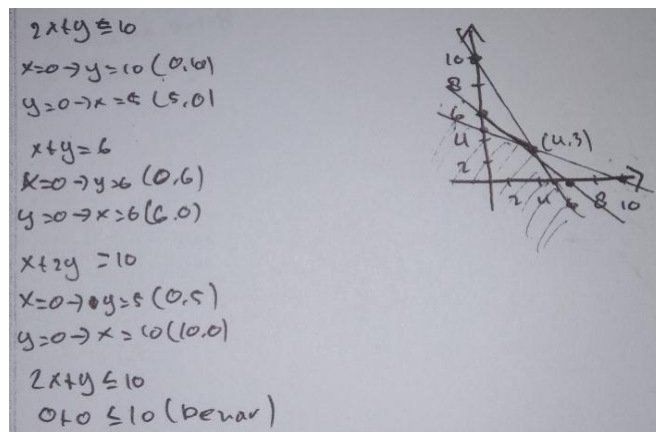 2x+y ≤ 10
x=0→y=10 (0,10)
y=0→x=5 (5,0)
x+y=6
x=0→y=6 (0,6)
y=0→x=6 (6,0)
x+2y =10
x=0→y=5 (0,5)
y=0→x=10 (10,0)
2x+y ≤ 10
0+0 ≤ 10 (benar)
10
8
6
4
2
(4,3)
2 4 6 8 10